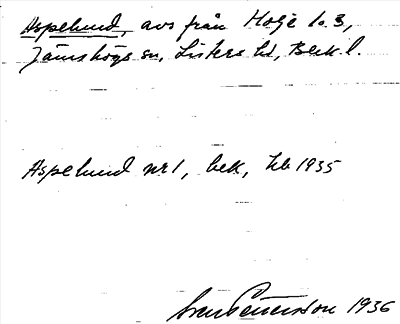 Aspelund, avs från Holje 1o.3,
Jämshögs sn, Listers hd, Blek. l.
Aspelund nr 1, bek, hb 1935
Sven Pettersson 1936